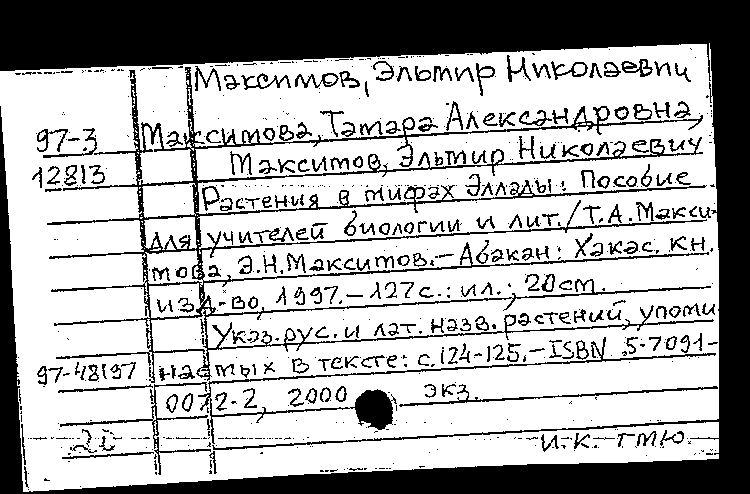 Максимов, Эльмир Николаевич
97-3 Максимова, Тамара Александровна,
12813 Максимов, Эльмир Николаевич
Растения в мифах Эллады: Пособие
для учителей биологии и лит./Т.А.Макси-
мова, Э.Н.Максимов.-Абакан: Хакас. кн.
изд-во, 1997.-127с.: ил.; 20см.
Указ.рус. и лат. назв. растений, упоми
97-48197 наемых в тексте: с.124-125.-ISBN 5-7091-
0072-2, 2000 экз.
20 И.К. ГМЮ.